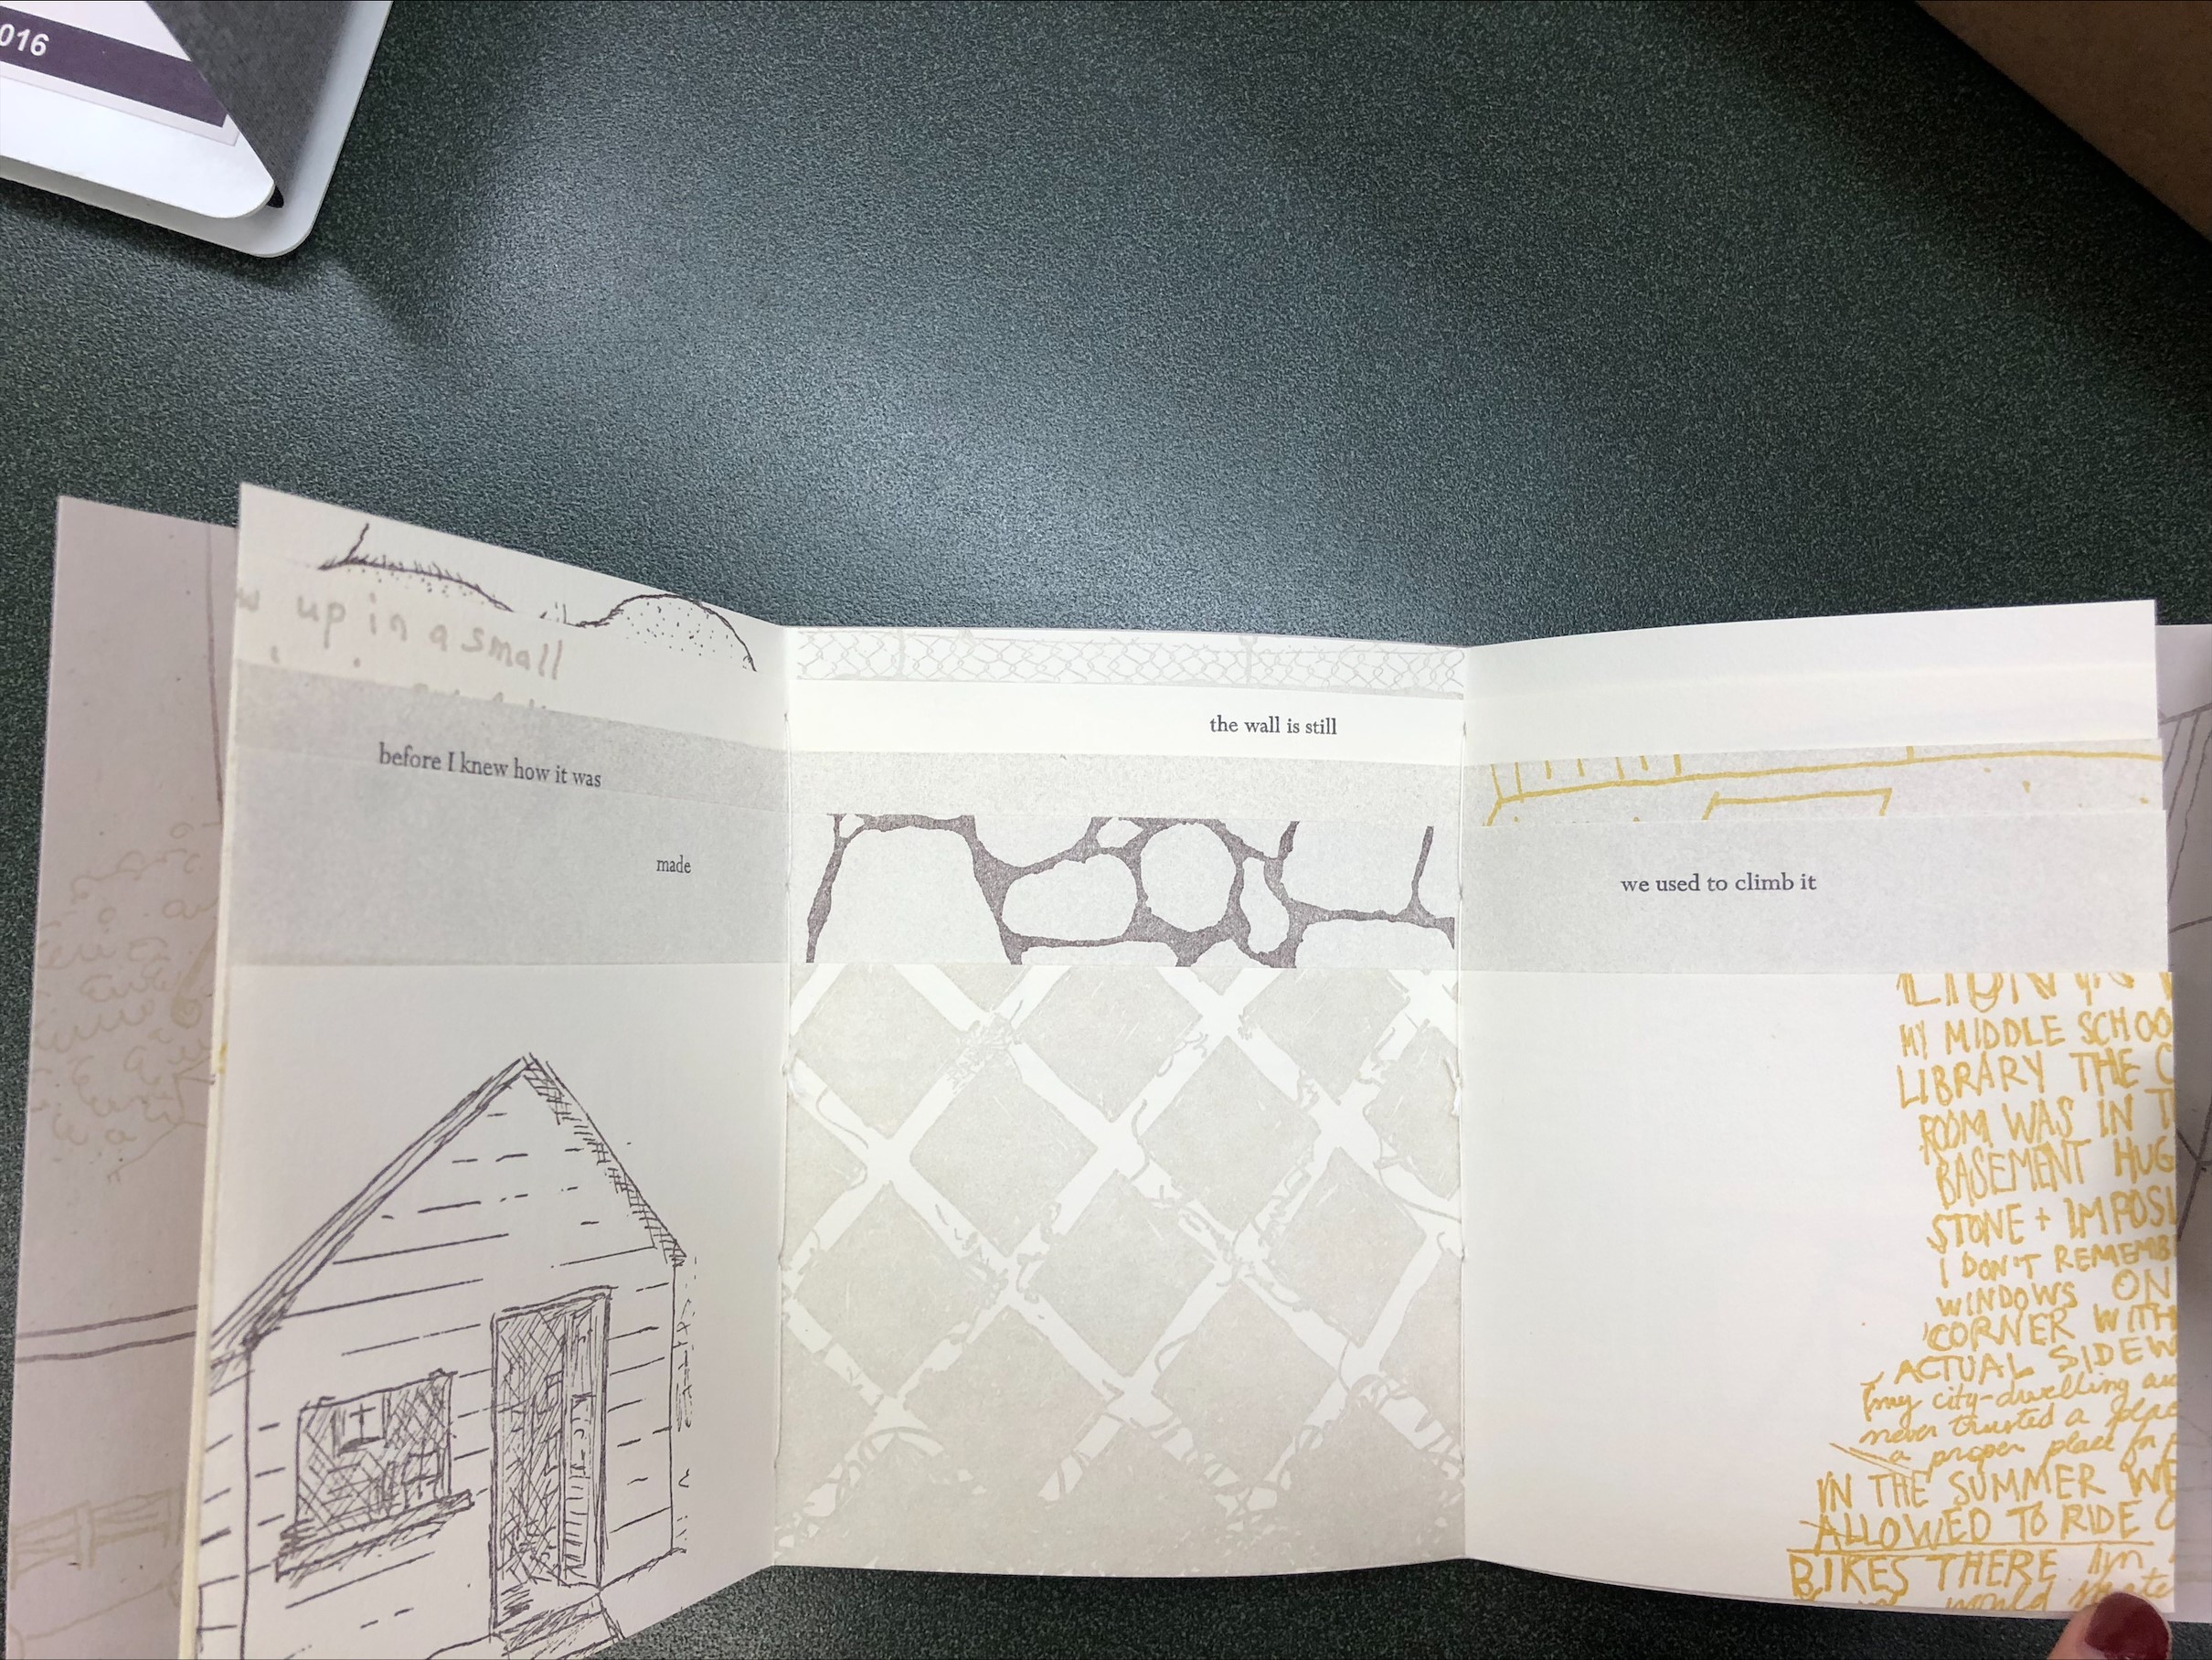 016
up in a small
before I knew how it was
made
the wall is still
we used to climb it
MY MIDDLE SCHOO
LIBRARY THE C
ROOM WAS IN T
BASEMENT HUG
STONE + IMPOSI
I DON'T REMEMB
WINDOWS ON
CORNER WITH
ACTUAL SIDEW
(my city-dwelling au
never trusted a
a proper place for
IN THE SUMMER WE
ALLOWED TO RIDE
BIKES THERE
would